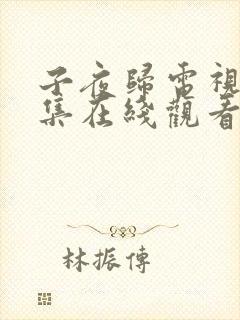 子夜歸電視
集在綫觀看
林振傳